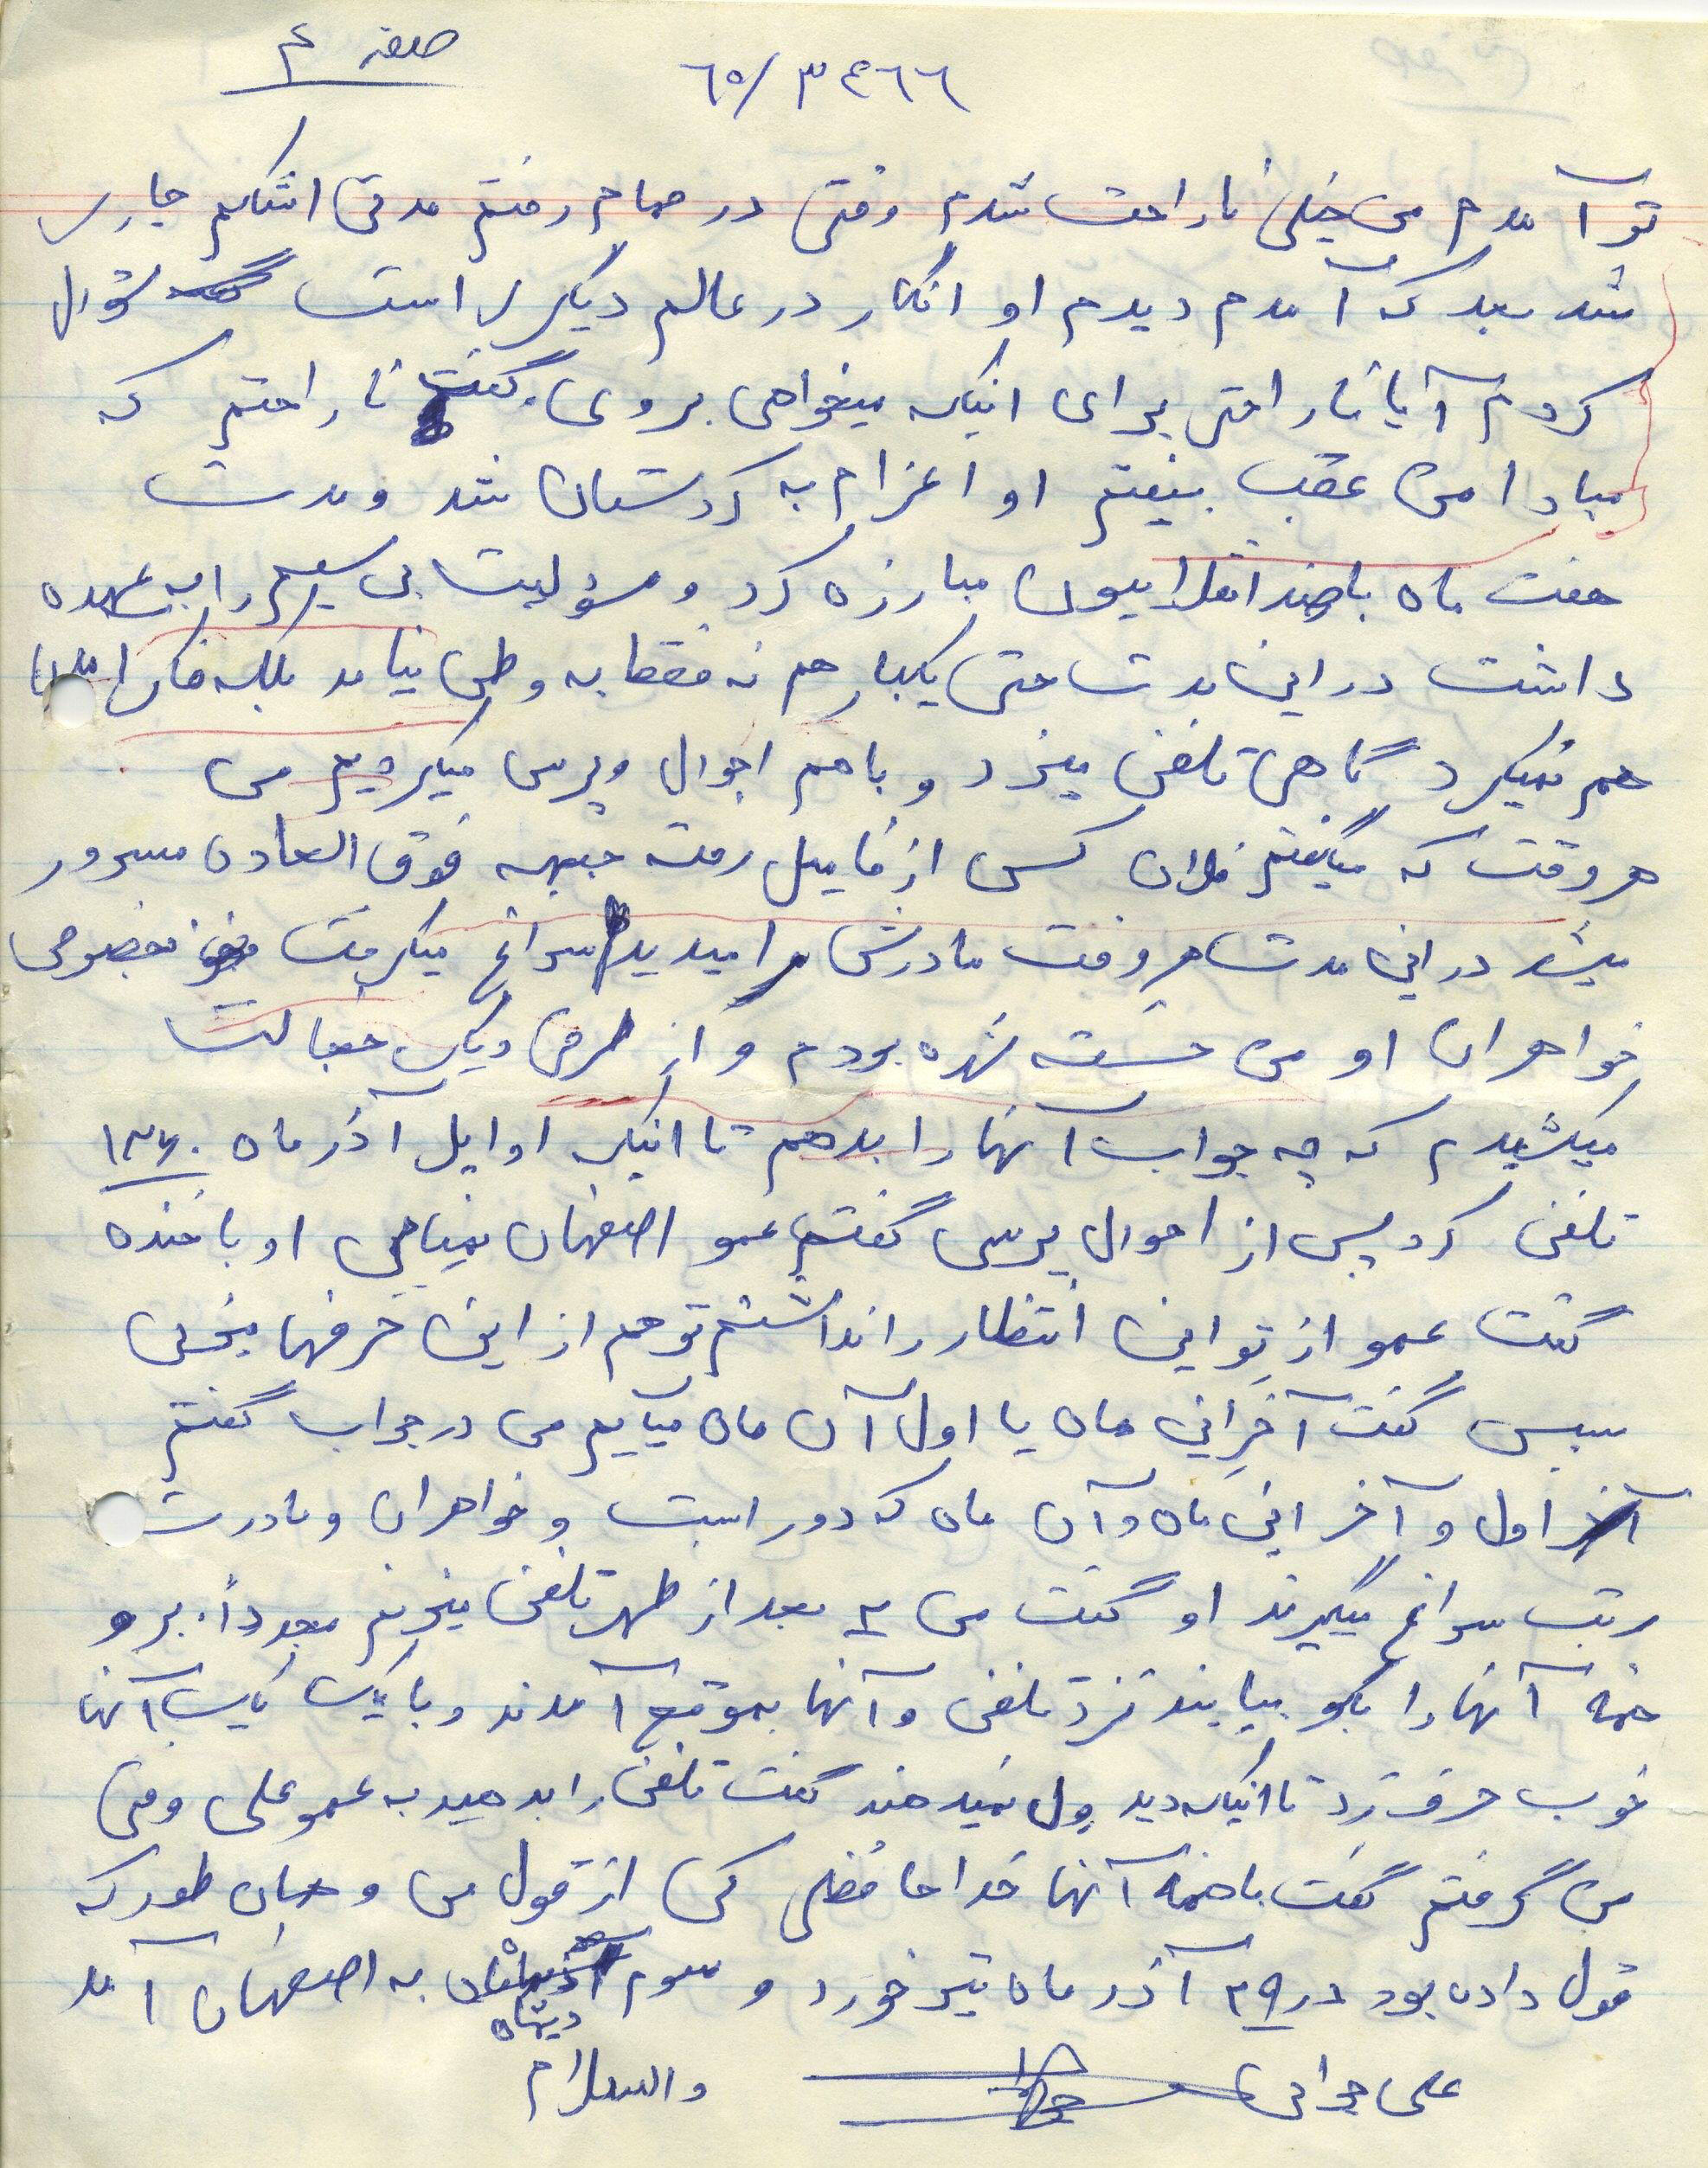 صفحه ۴
۶۵/۳۴۶۶
تو آمدم من خیلی ناراحت شدم وقتی در حمام رفتم مدتی اشکم جاری
شد بعد که آمدم دیدم او انگار در عالم دیگری است سؤال
کردم آیا ناراحتی برای اینکه میخواهی بروی. گفت ناراحتم که
مبادا من عقب بیفتم او اعزام به کردستان شد و مدت
هفت ماه با ضد انقلابیون مبارزه کرد و مسؤلیت بی سیم را به عهده
داشت در این مدت حتی یکبار هم نه فقط به وطن نیامد بلکه فکر آمدن
هم نمیکرد گاهی تلفن میزد و با هم احوال پرسی میکردیم من
هر وقت که میگفتم فلان کس از فامیل رفته جبهه فوق العاده مسرور
میشد در این مدت هر وقت مادرش مرا میدید سراغ میگرفت بخصوص
خواهران او من خسته شده بودم و از طرفی دیگر خجالت
میکشیدم که چه جواب آنها را بدهم تا اینکه اوایل آذر ماه ۱۳۶۰
تلفن کرد پس از احوال پرسی گفتم عمو اصفهان نمیایی او با خنده
گفت عمو از تو این انتظار را نداشتم تو هم از این حرفها میزنی
سپس گفت آخر این ماه یا اول آن ماه میآیم من در جواب گفتم
اول و آخر این ماه و آن ماه که دور است و خواهران و مادرت
مرتب سراغ میگیرند او گفت من ۲ بعد از ظهر تلفن میزنم مجدداً. برو
همه آنها را بگو بیایند نزد تلفن و آنها بموقع آمدند و با یک یک آنها
خوب حرف زد تا اینکه دید ول نمیدهند گفت تلفن را بدهید به عمو علی وقتی
من گرفتم گفت با همه آنها خدا حافظی کن از قول من و همان طور که
قول داده بود در ۲۹ آذر ماه تیر خورد و سوم دیماه به اصفهان آمد
والسلام
علی جوانی